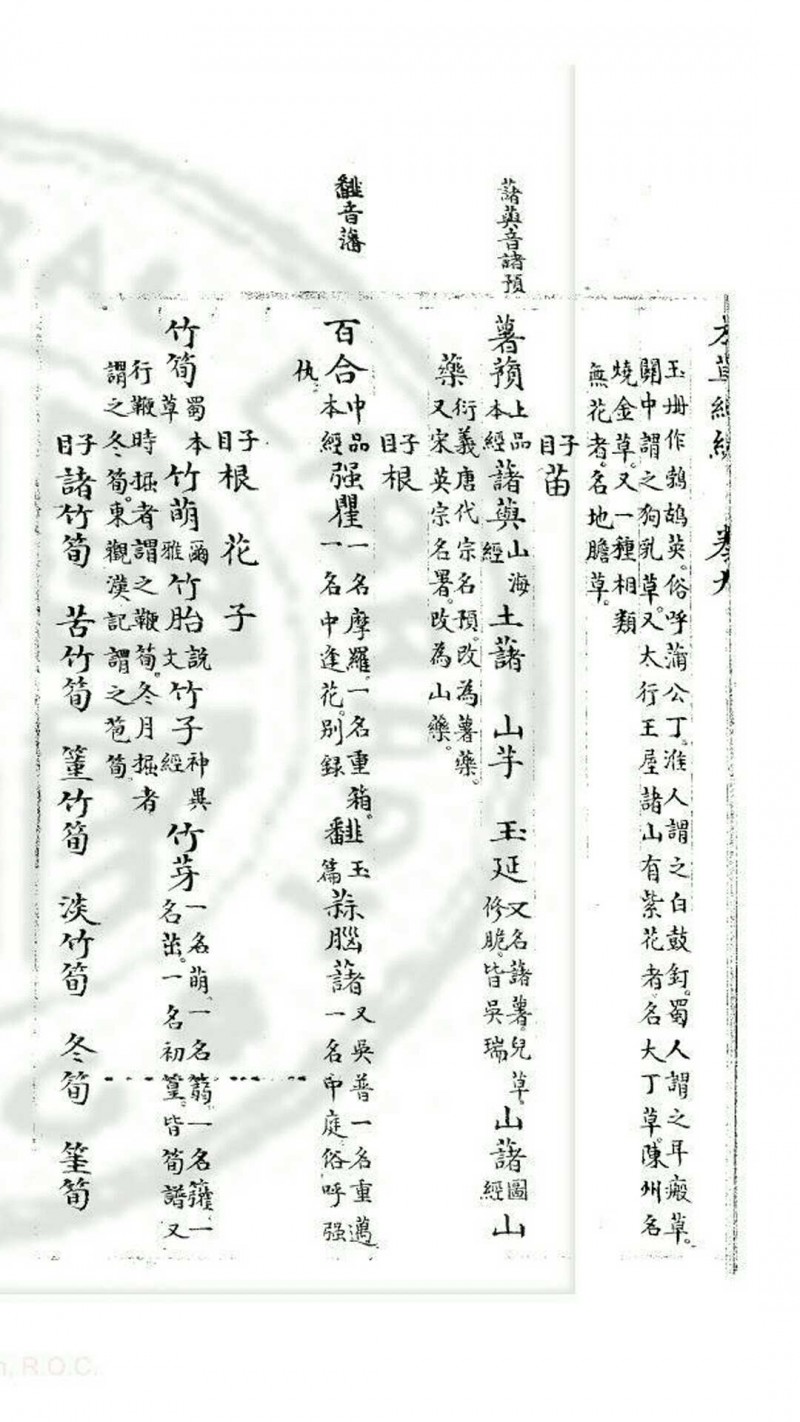 玉冊作鵓鴣英。俗呼蒲公丁。淮人謂之白鼓釘。蜀人謂之耳瘢草。
關中謂之狗乳草。又大行王屋諸山有紫花者。名大丁草。陳州名
燒金草。又一種相類
無花者。名地膽草。
子目苗
藷藇音諸預
薯蕷上品本經藷藇山海經土藷 山芋 玉延又名藷薯。兒草。修脆。皆吳瑞山藷圖經山
藥衍義唐代宗名預。改為薯藥。又宋英宗名署。改為山藥。
子目根
音藩
百合中品本經强瞿一名摩羅。一名重箱。一名中逢花。別録玉篇蒜腦藷又吳普一名重邁一名中庭俗呼强
仇
子目根 花 子
竹筍蜀本草竹萌爾雅竹胎說文竹子神異經竹芽一名萌。一名篛。一名虇。一名茁。一名初篁。皆筍譜又
行鞭時掘者謂之鞭筍。冬月掘者
謂之冬筍。東觀漢記謂之苞筍
子目諸竹筍 苦竹筍 䈽竹筍 淡竹筍 冬筍 筀筍
n, R.O.C.